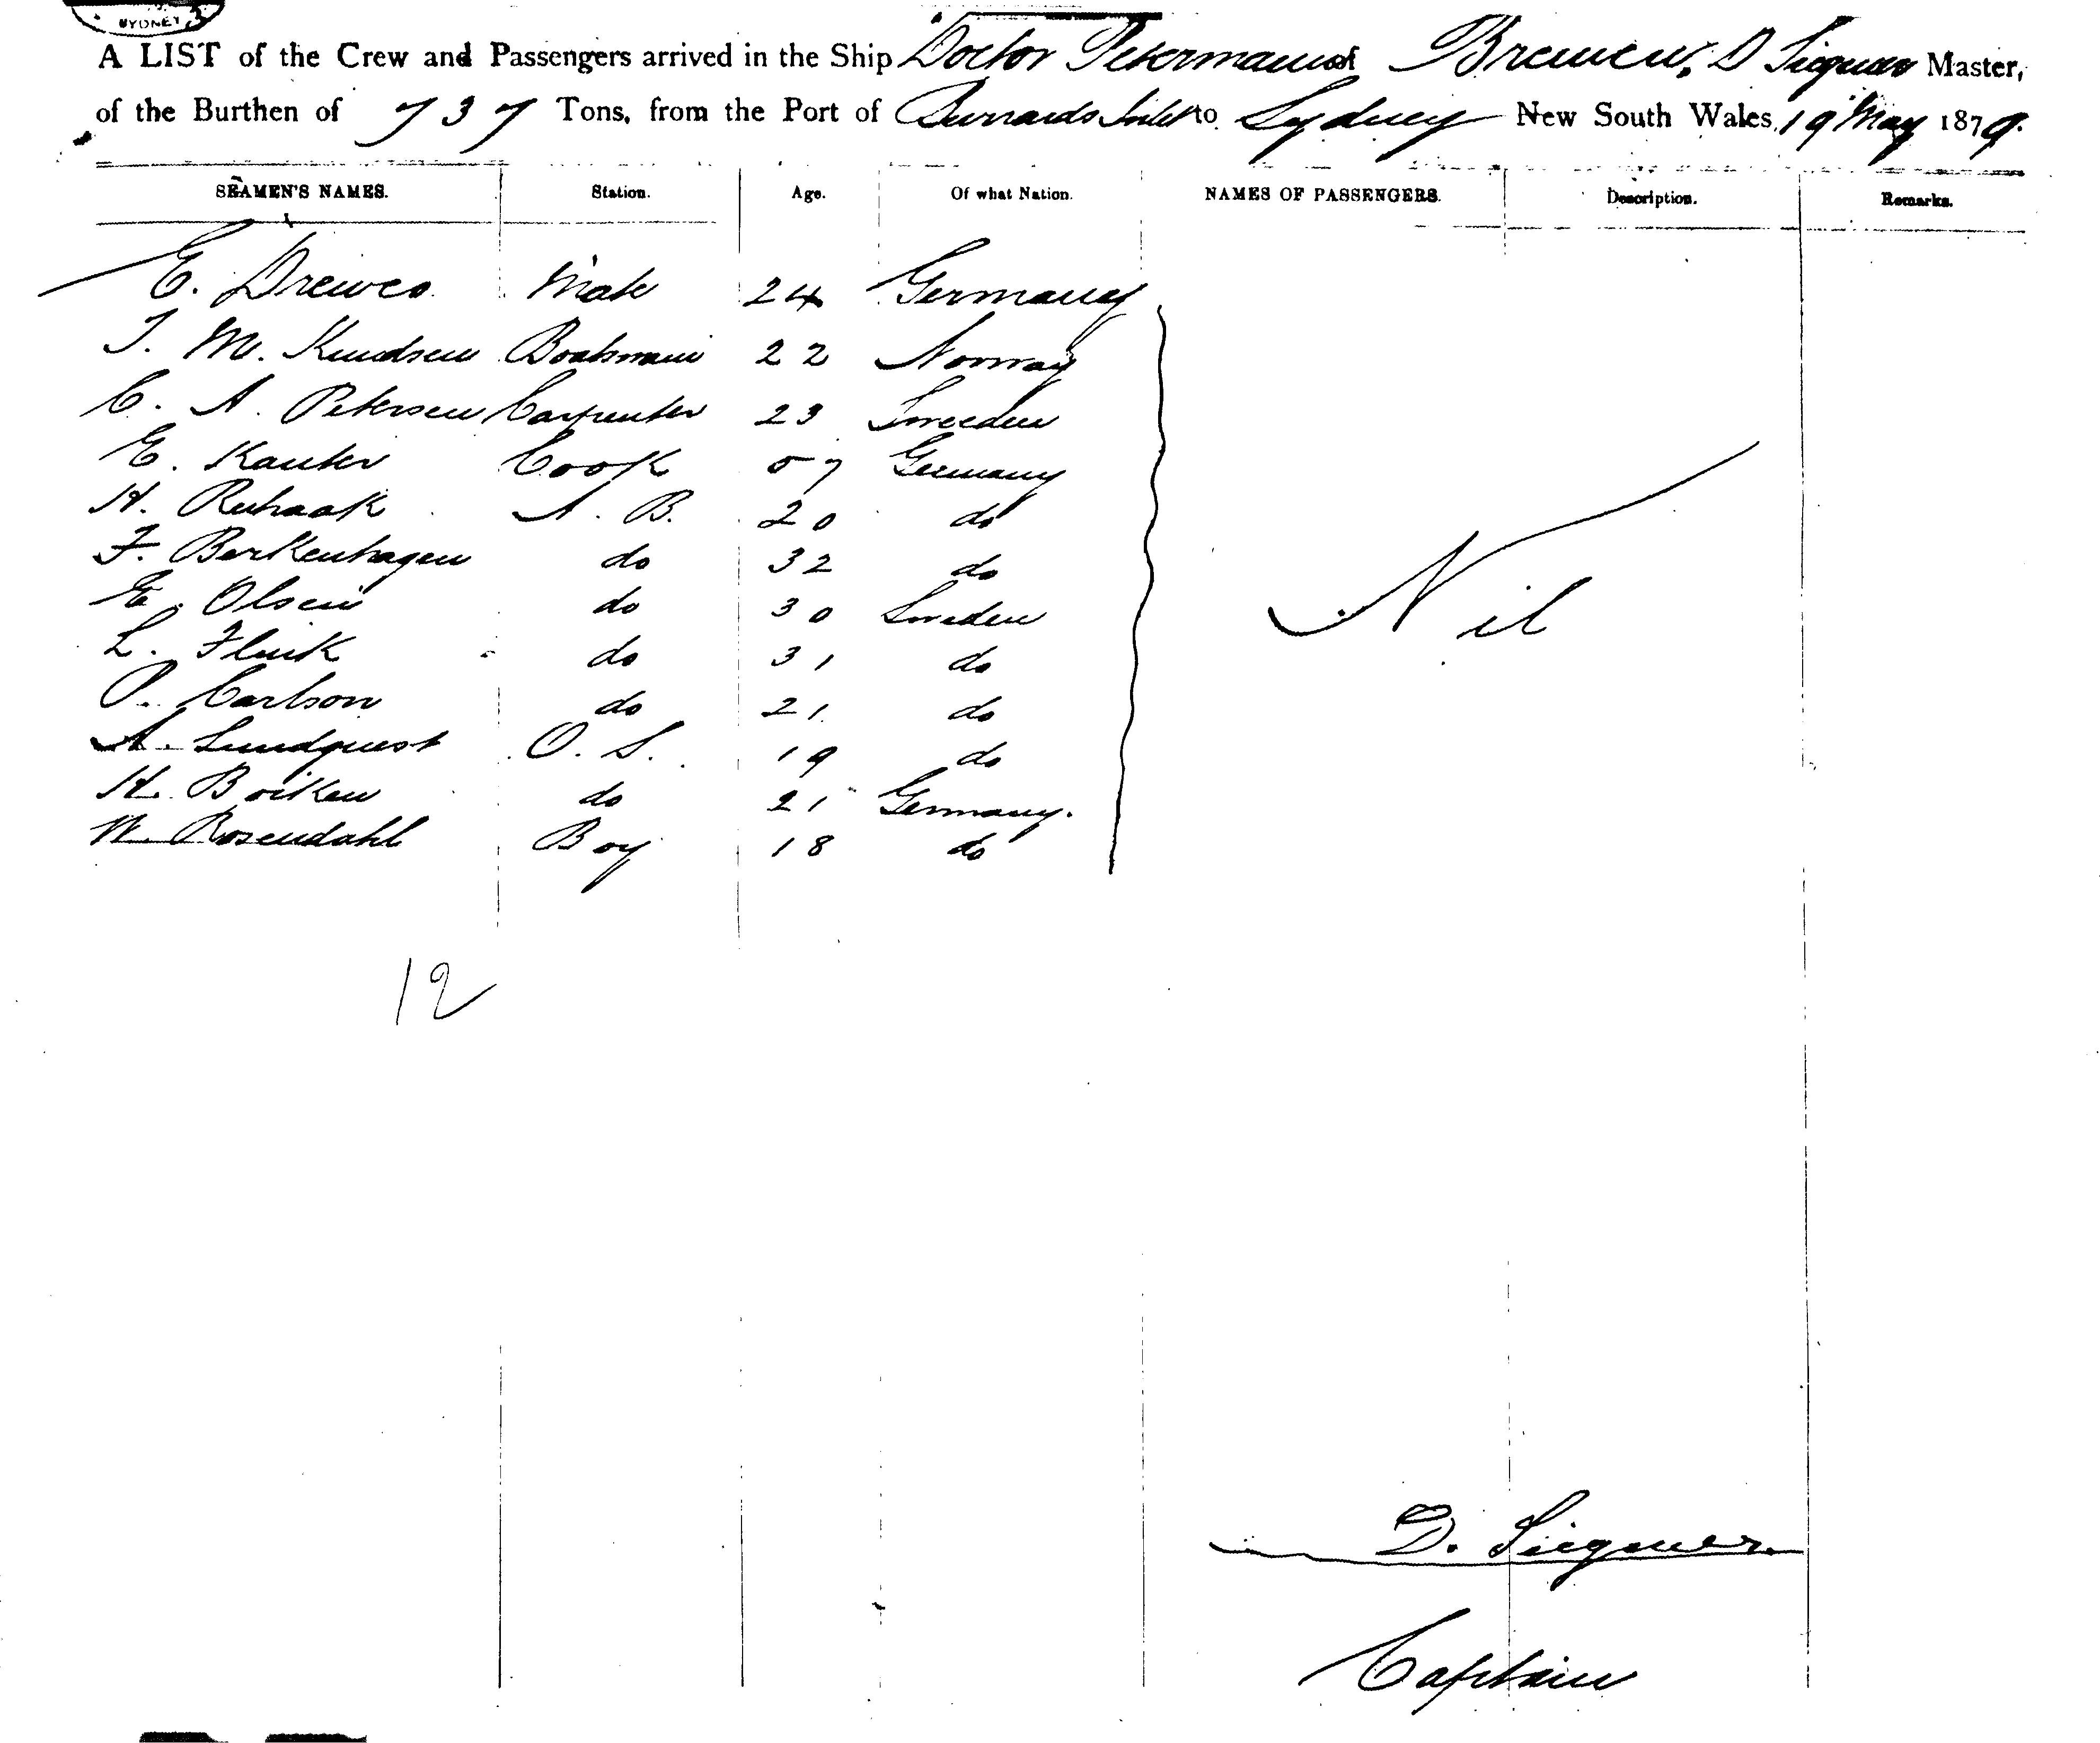 SYDNEY
A LIST of the Crew and Passengers arrived in the Ship Doctor Petermann of Bremen, D Siegener Master,
of the Burthen of 737 Tons, from the Port of Burrards Inlet to Sydney New South Wales, 19 May 1879.
SEAMEN'S NAMES. Station. Age. Of what Nation. NAMES OF PASSENGERS. Description. Remarks.
E. Drewes Mate 24 Germany
J. M. Knudsen Boatsman 22 Norway
C. A. Petersen Carpenter 23 Sweeden
E. Kanter Cook 57 Germany
H. Ruhaak A. B. 20 do
F. Berkenhagen do 32 do
E. Olsen do 30 Sweden
Nil
L. Flink do 31 do
P. Carlson do 21 do
A. Lundquest O. S. 19 do
H. Boiken do 21 Germany.
W. Rosendahl Boy 18 do
12
D. Siegener
Captain